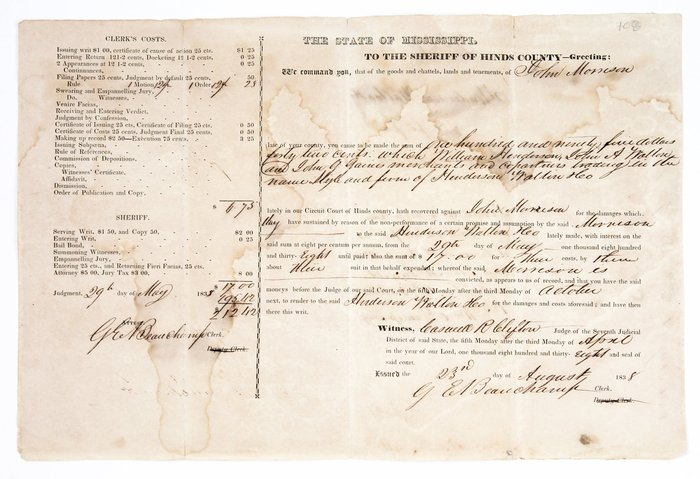 108
CLERK'S COSTS.
Issuing writ $1 00, certificate of cause of action 25 cts. $1 25
Entering Return 12 1-2 cts, Docketing 12 1-2 cts. 0 25
2 Appearances at 12 1-2 cts. 0 25
Continuances,
Filing Papers 25 cents, Judgment by default 25 cts. 50
Rule 1 Motion 12½ 1 Order 12½ 25
Swearing and Empannelling Jury,
Do. Witnesses,
Venire Facias,
Receiving and Entering Verdict.
Judgment by Confession,
Certificate of Issuing 25 cts, Certificate of Filing 25 cts. 0 50
Certificate of Costs 25 cents, Judgment Final 25 cents. 0 50
Making up record $2 50—Execution 75 cents, 3 25
Issuing Subpœna,
Rule of References,
Commission of Depositions,
Copies,
Witnesses' Certificate,
Affidavit,
Dismission,
Order of Publication and Copy.
$ 6 75
SHERIFF.
Serving Writ, $1 50, and Copy 50, $2 00
Entering Writ, 0 25
Bail Bond,
Summoning Witnesses,
Empannelling Jury,
Entering 25 cts., and Returning Fieri Facias, 25 cts.
Attorney $5 00, Jury Tax $3 00. $ 8 00
$ 17.00
Judgment, 29th day of May 1838 195 42
$ 212 42
G E N Beauchamp Clerk.
Deputy Clerk.
THE STATE OF MISSISSIPPI,
TO THE SHERIFF OF HINDS COUNTY—Greeting:
We command you, that of the goods and chattels, lands and tenements, of John Morrison
late of your county, you cause to be made the sum of One hundred and ninety five dollars
forty two cents. which William Henderson, John A Walton
and John Gaines merchants and copartners trading in the
name style and firm of Henderson Walton & Co
lately in our Circuit Court of Hinds county, hath recovered against John Morrison for the damages which
they have sustained by reason of the non-performance of a certain promise and assumption by the said Morrison
to the said Henderson Walton & Co lately made, with interest on the
said sum at eight per centum per annum, from the 29th day of May one thousand eight hundred
and thirty-Eight until paid; also the sum of $17.00 for Their costs, by them
about Their suit in that behalf expended; whereof the said Morrison is
convicted, as appears to us of record, and that you have the said
moneys before the Judge of our said Court, on the fifth Monday after the third Monday of October
next, to render to the said Henderson Walton & Co for the damages and costs aforesaid; and have then
there this writ.
Witness, Caswell R Clifton Judge of the Seventh Judicial
District of said State, the fifth Monday after the third Monday of April
in the year of our Lord, one thousand eight hundred and thirty-Eight and seal of
said court.
Issued the 23rd day of August 1838
G E N Beauchamp Clerk.
Deputy Clerk.